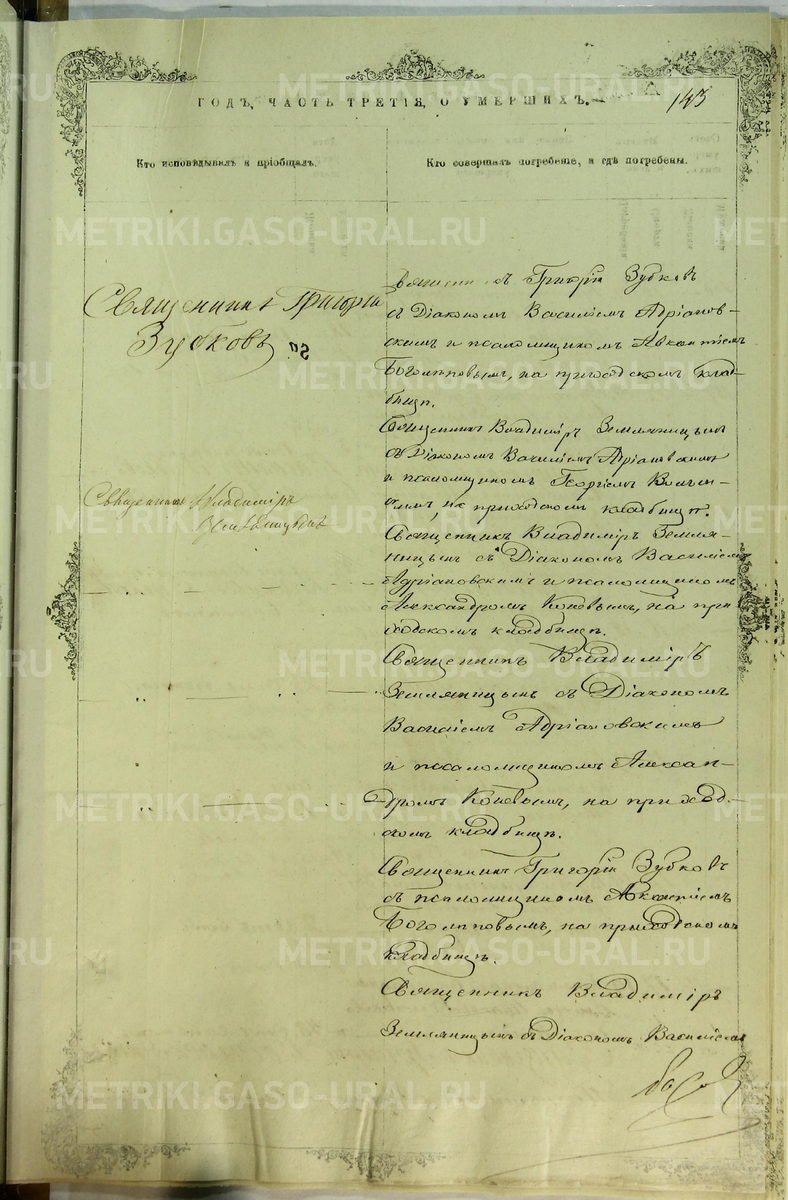 ГОДЪ, ЧАСТЬ ТРЕТІЯ, О УМЕРШИХЪ.
143
Кто исповѣдывалъ и пріобщалъ.
Кто совершалъ погребеніе, и гдѣ погребены.
METRIKI.GASO-URAL.RU
Священникъ Григорій
Зубковъ
Священникъ Владиміръ
Григорій Зубковъ
съ Діакономъ Василіемъ Адріанов-
скимъ и псаломщикомъ Авксентіемъ
Боголѣповымъ, на приходскомъ клад-
бищѣ.
Священникъ Владиміръ Земляницынъ
съ Діакономъ Василіемъ Адріановскимъ
и псаломщикомъ Георгіемъ
на приходскомъ кладбищѣ.
Священникъ Владиміръ Земля-
ницынъ съ Діакономъ Василіемъ
Адріановскимъ и псаломщикомъ
Александромъ Коневымъ, на при
ходскомъ кладбищѣ.
Священникъ Владиміръ
Земляницынъ съ Діакономъ
Василіемъ Адріановскимъ
и псаломщикомъ Алексан-
дромъ Коневымъ, на приход-
скомъ кладбищѣ.
Священникъ Григорій Зубковъ
съ псаломщикомъ Авксентіемъ
Боголѣповымъ, на приходскомъ
кладбищѣ.
Священникъ Владиміръ
Земляницынъ съ Діакономъ Василіемъ